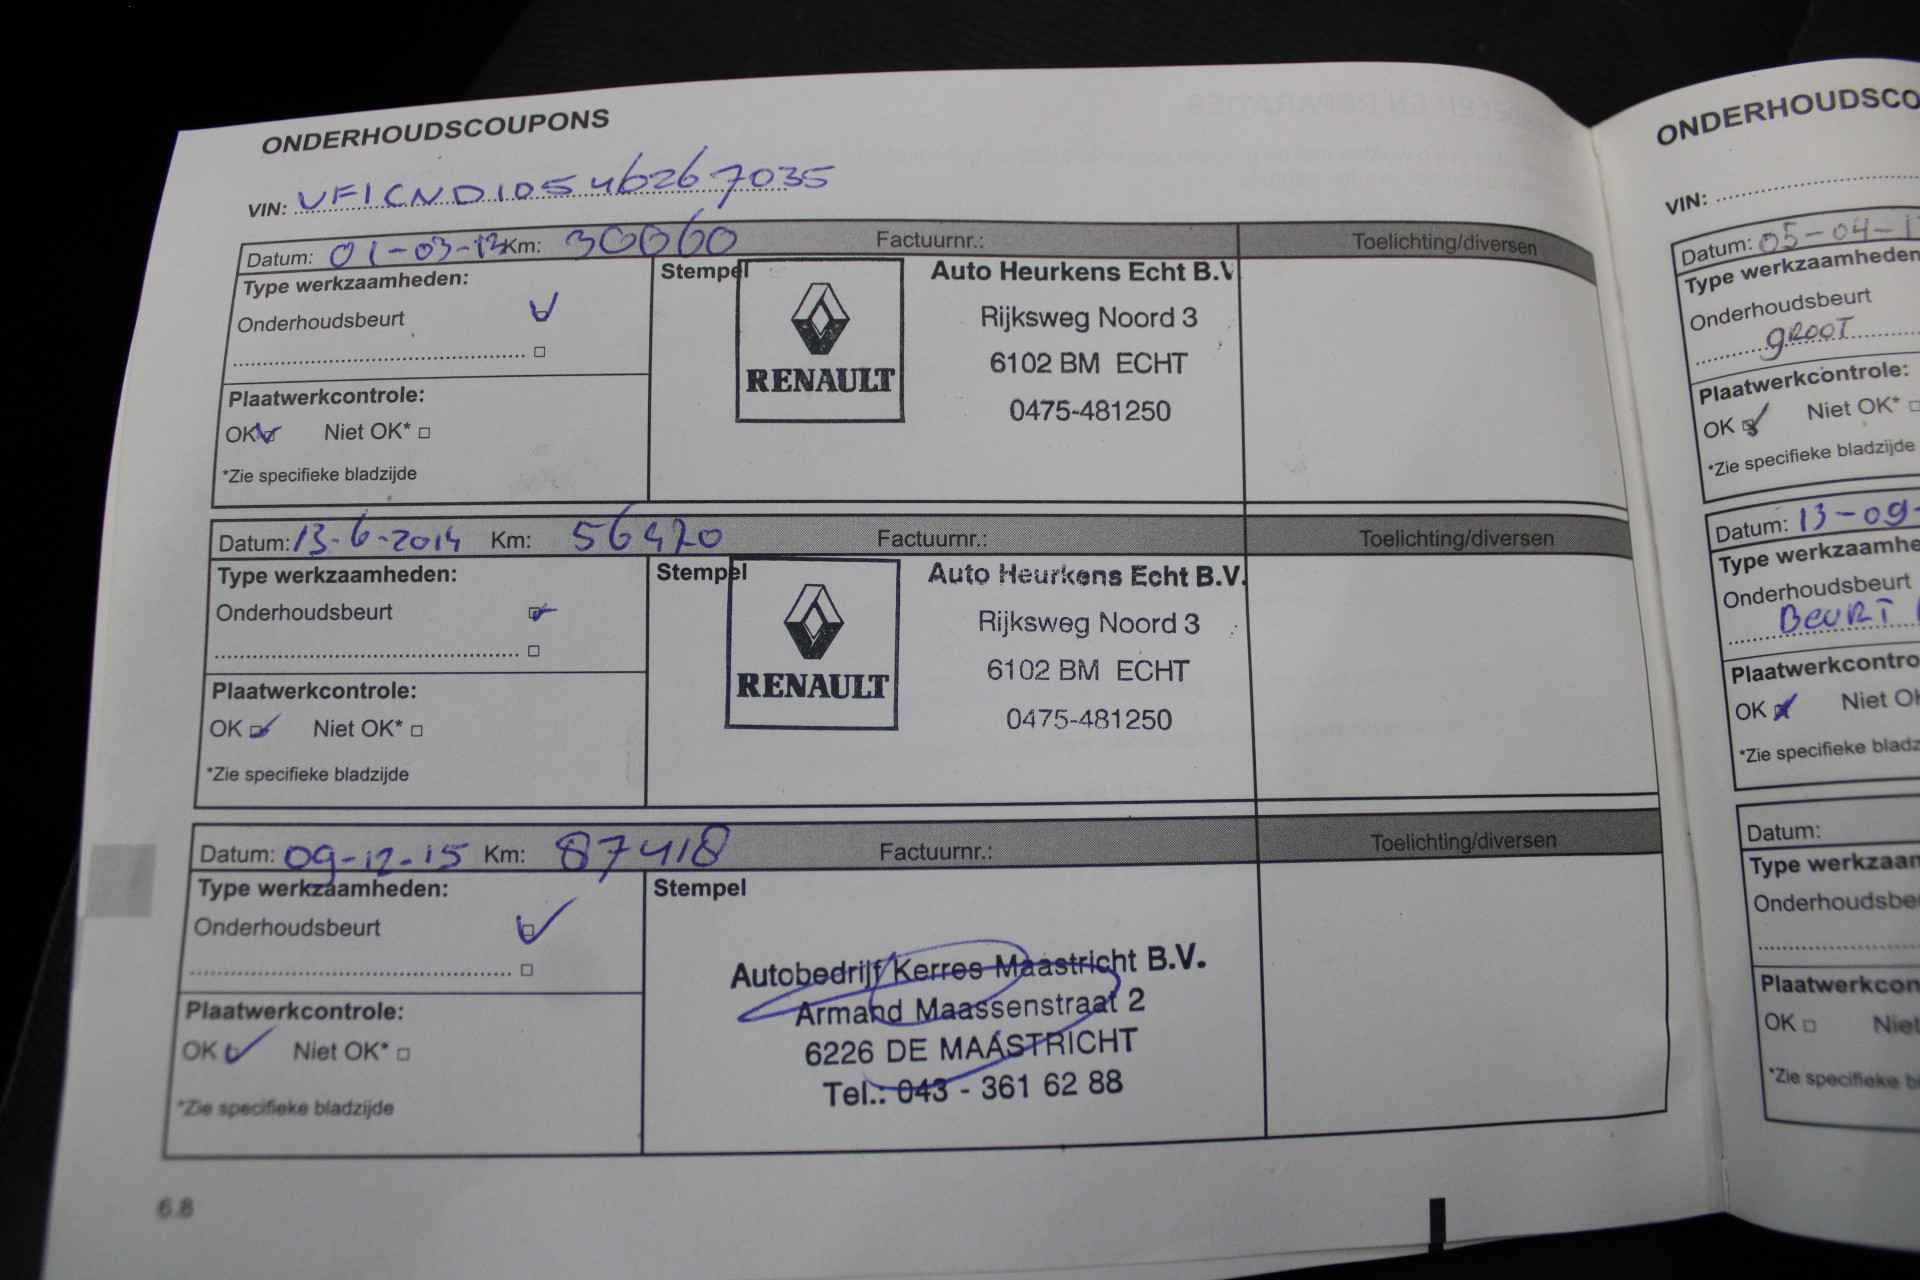 ONDERHOUDSCOUPONS
VIN: VF1CND10546267035
Datum: 01-03-13 Km: 30060 Factuurnr.: Toelichting/diversen
Type werkzaamheden:
Onderhoudsbeurt
Plaatwerkcontrole:
OK Niet OK*
*Zie specifieke bladzijde
Stempel
RENAULT
Auto Heurkens Echt B.V
Rijksweg Noord 3
6102 BM ECHT
0475-481250
Datum: 13-6-2014 Km: 56420 Factuurnr.: Toelichting/diversen
Type werkzaamheden:
Onderhoudsbeurt
Plaatwerkcontrole:
OK Niet OK*
*Zie specifieke bladzijde
Stempel
RENAULT
Auto Heurkens Echt B.V.
Rijksweg Noord 3
6102 BM ECHT
0475-481250
Datum: 09-12-15 Km: 87418 Factuurnr.: Toelichting/diversen
Type werkzaamheden:
Onderhoudsbeurt
Plaatwerkcontrole:
OK Niet OK*
*Zie specifieke bladzijde
Stempel
Autobedrijf Kerres Maastricht B.V.
Armand Maassenstraat 2
6226 DE MAASTRICHT
Tel.: 043 - 361 62 88
6.8
ONDERHOUDSCO
VIN:
Datum: 05-04-1
Type werkzaamheden
Onderhoudsbeurt
GROOT
Plaatwerkcontrole:
OK Niet OK*
*Zie specifieke bladzijde
Datum: 13-09-
Type werkzaamhe
Onderhoudsbeurt
BEURT
Plaatwerkcontro
OK Niet OK
*Zie specifieke bladz
Datum:
Type werkzaam
Onderhoudsbe
Plaatwerkcon
OK Niet
*Zie specifieke b